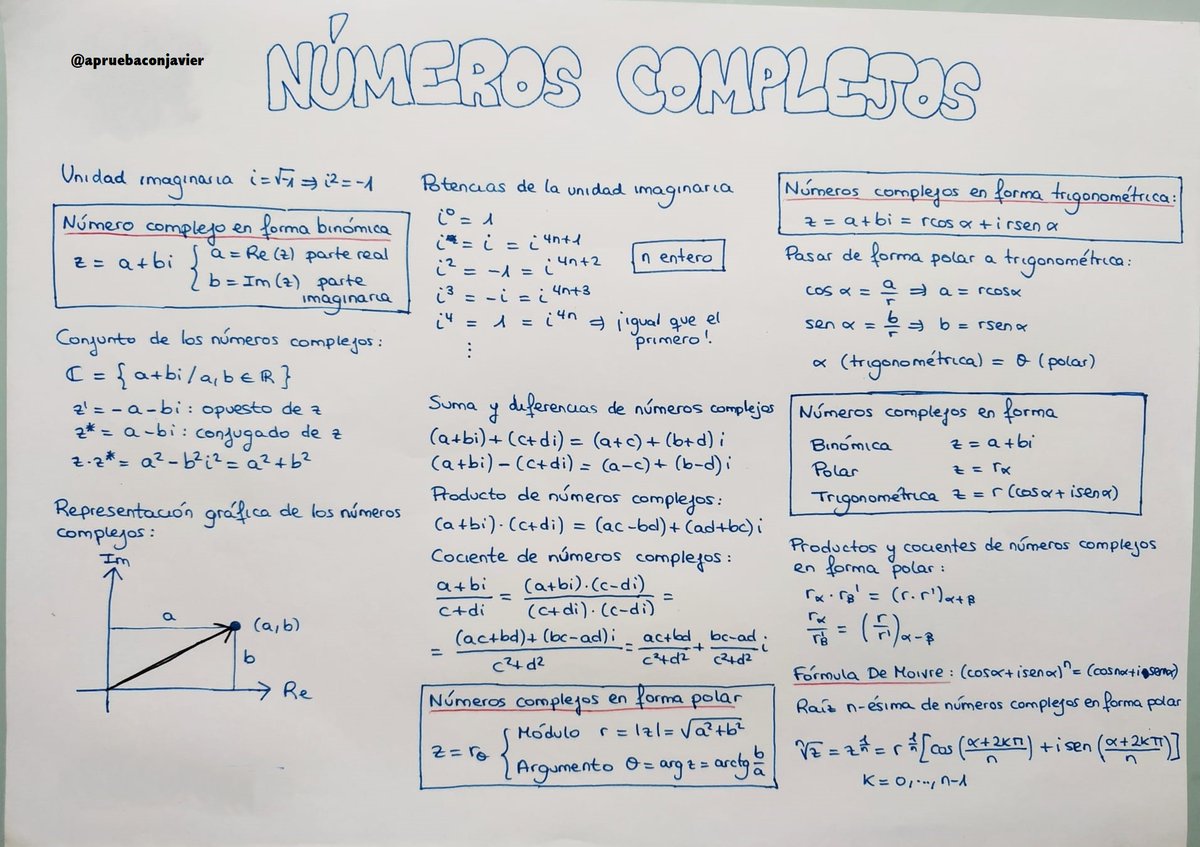 @apruebaconjavier
NÚMEROS COMPLEJOS
Unidad imaginaria i = √-1 ⇒ i² = -1
Número complejo en forma binómica
z = a + bi { a = Re(z) parte real
b = Im(z) parte
imaginaria
Conjunto de los números complejos:
ℂ = { a+bi / a, b ∈ ℝ }
z' = -a - bi : opuesto de z
z* = a - bi : conjugado de z
z·z* = a² - b²i² = a² + b²
Representación gráfica de los números
complejos:
Im
a
(a,b)
b
Re
Potencias de la unidad imaginaria
i⁰ = 1
i = i = i⁴ⁿ⁺¹
i² = -1 = i⁴ⁿ⁺²
n entero
i³ = -i = i⁴ⁿ⁺³
i⁴ = 1 = i⁴ⁿ ⇒ ¡igual que el
primero!
⋮
Suma y diferencias de números complejos
(a+bi) + (c+di) = (a+c) + (b+d) i
(a+bi) - (c+di) = (a-c) + (b-d) i
Producto de números complejos:
(a+bi)·(c+di) = (ac-bd) + (ad+bc) i
Cociente de números complejos:
(a+bi)/(c+di) = ((a+bi)·(c-di))/((c+di)·(c-di)) =
= ((ac+bd)+(bc-ad)i)/(c²+d²) = (ac+bd)/(c²+d²) + (bc-ad)/(c²+d²) i
Números complejos en forma polar
z = r_θ { Módulo r = |z| = √(a²+b²)
Argumento θ = arg z = arctg b/a
Números complejos en forma trigonométrica:
z = a + bi = r cos α + i r sen α
Pasar de forma polar a trigonométrica:
cos α = a/r ⇒ a = r cos α
sen α = b/r ⇒ b = r sen α
α (trigonométrica) = θ (polar)
Números complejos en forma
Binómica z = a + bi
Polar z = r_α
Trigonométrica z = r (cos α + i sen α)
Productos y cocientes de números complejos
en forma polar:
r_α · r'_β = (r·r')_α+β
r_α/r'_β = (r/r')_α-β
Fórmula De Moivre: (cos α + i sen α)ⁿ = (cos nα + i sen nα)
Raíz n-ésima de números complejos en forma polar
ⁿ√z = z^(1/n) = r^(1/n) [cos ((α+2kπ)/n) + i sen ((α+2kπ)/n)]
K = 0, ..., n-1